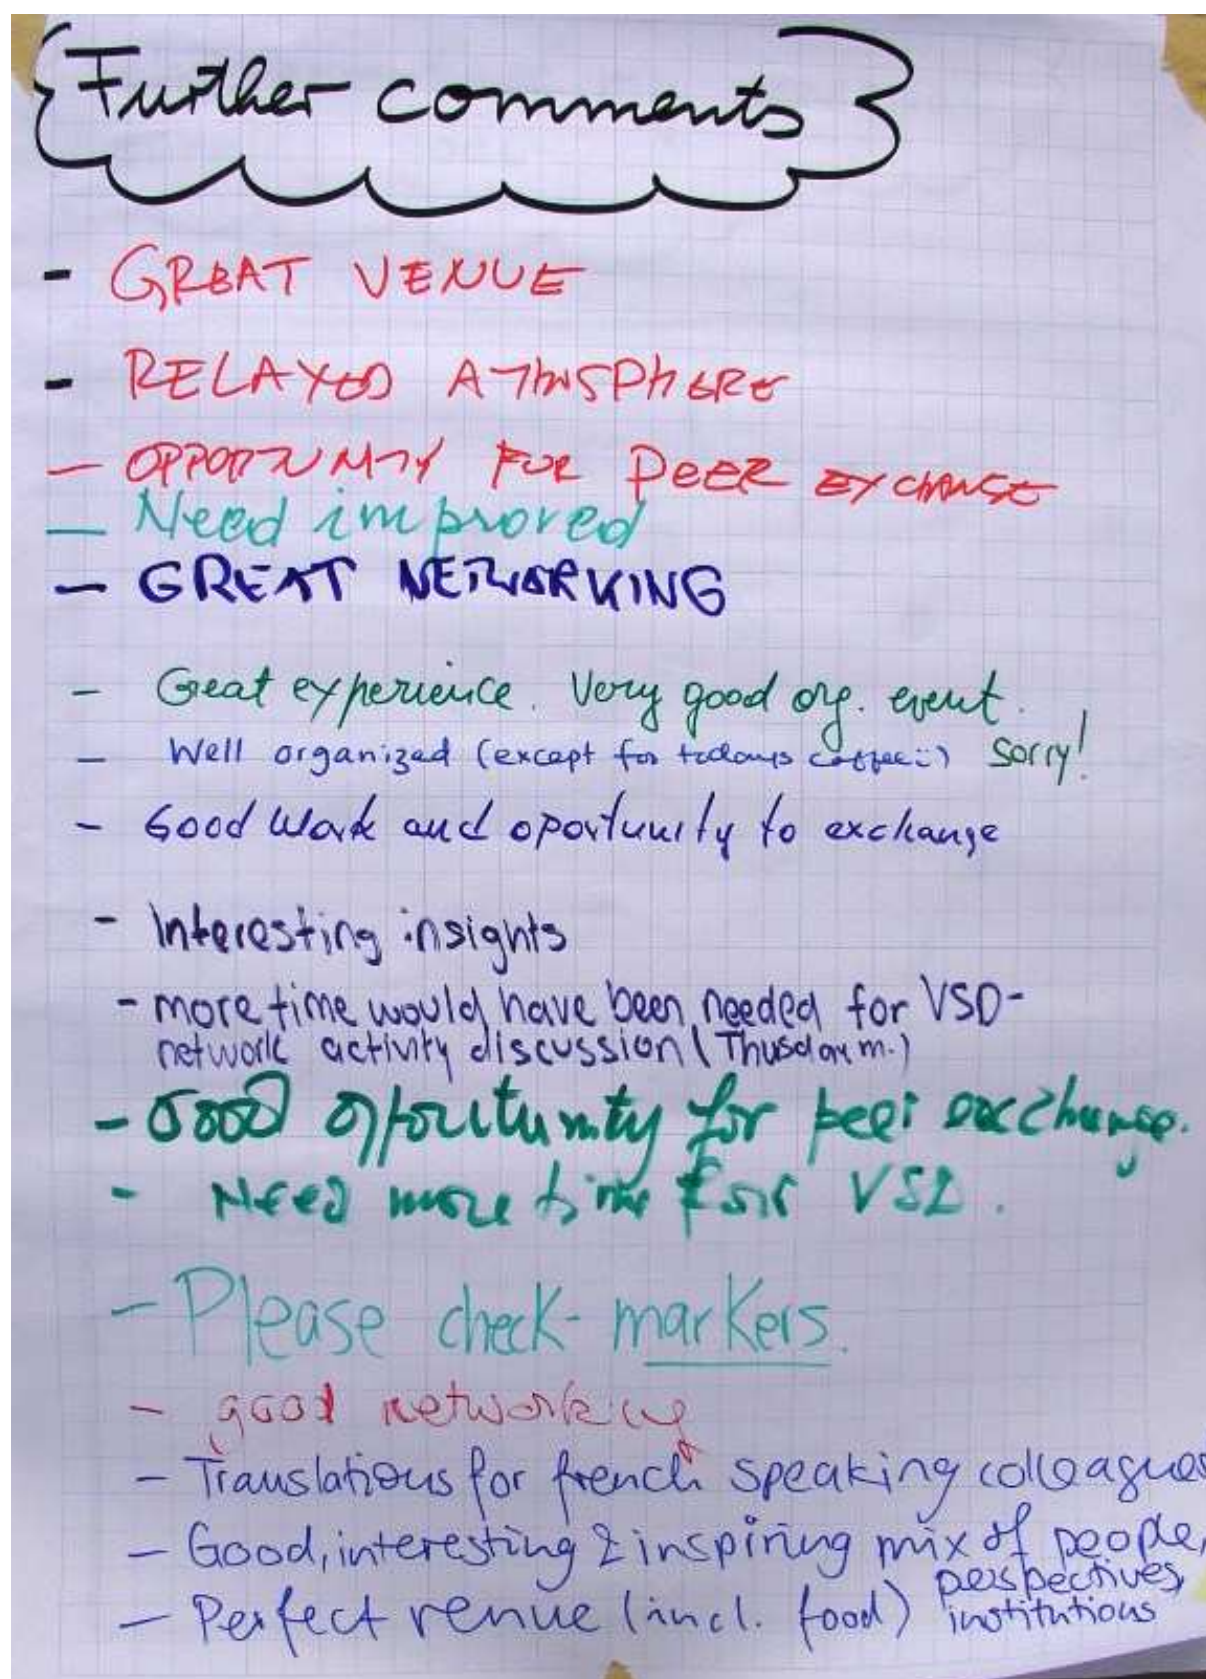 Further comments
- GREAT VENUE
- RELAXED ATMOSPHERE
- OPPORTUNITY FOR PEER EXCHANGE
- Need improved
- GREAT NETWORKING
- Great experience. Very good org. event.
- Well organized (except for todays coffee :) Sorry!
- Good Work and oportunity to exchange
- Interesting insights
- more time would have been needed for VSD-
network activity discussion (Thusday m.)
- Good opportunity for peer exchange.
- Need more time for VSD.
- Please check markers.
- good networking
- Translations for french speaking colleagues
- Good, interesting & inspiring mix of people,
perspectives,
institutions
- Perfect venue (incl. food)